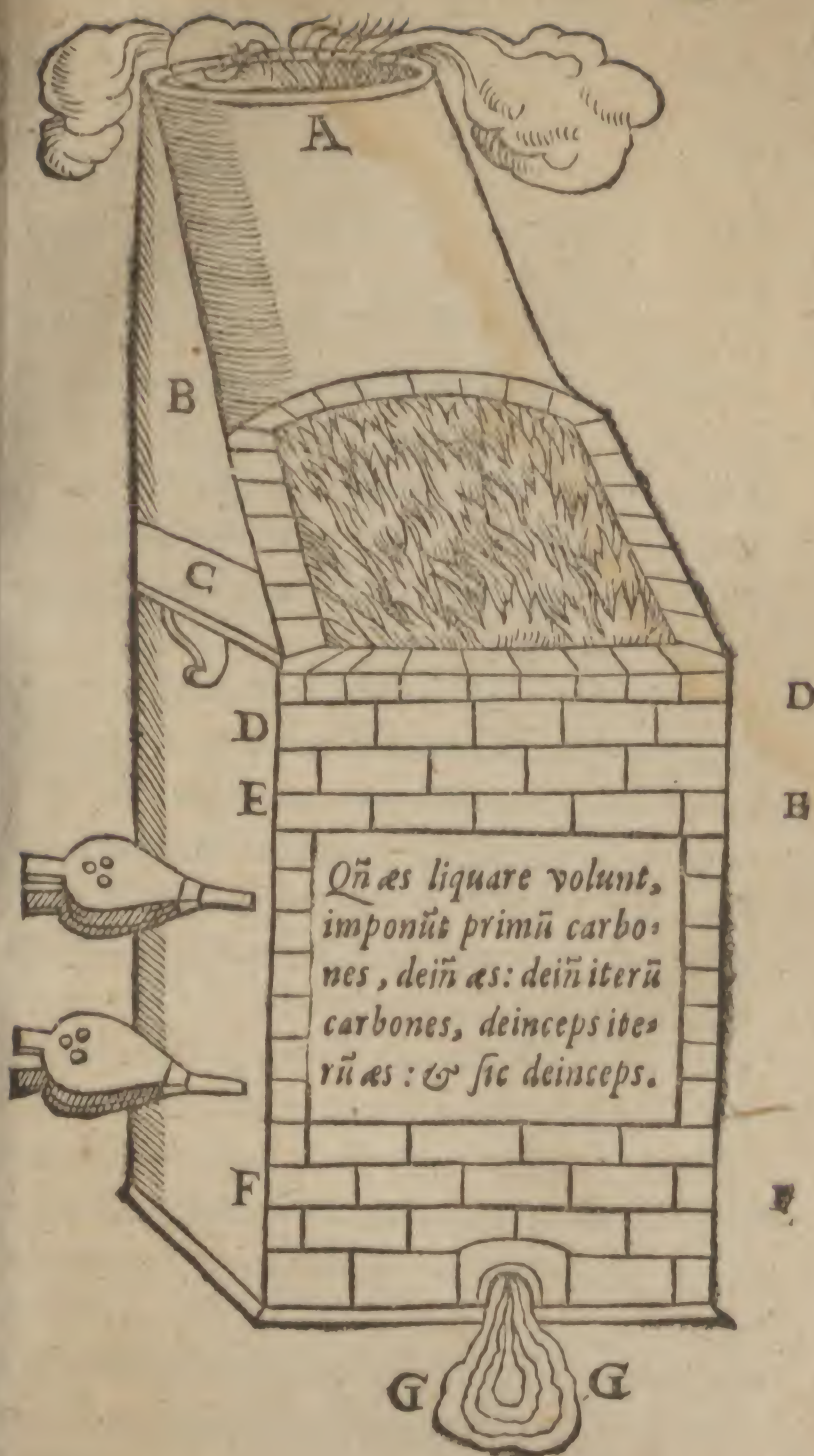 A
B
C
D D
E E
Qñ æs liquare volunt,
imponũt primũ carbo-
nes, deiñ æs: deiñ iterũ
carbones, deinceps ite-
rũ æs: & ſic deinceps.
F F
G G